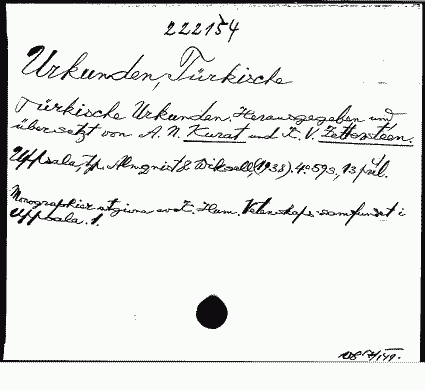 222154
Urkunden, Türkische
Türkische Urkunden. Herausgegeben und
übersetzt von A. N. Kurat und K. V. Zettersteen.
Uppsala, tp. Almqvist & Wiksell, (1938). 4° 59 s., 13 pril.
Monographier utgivna av K. Hum. Vetenskaps-samfundet i
Uppsala. 1.